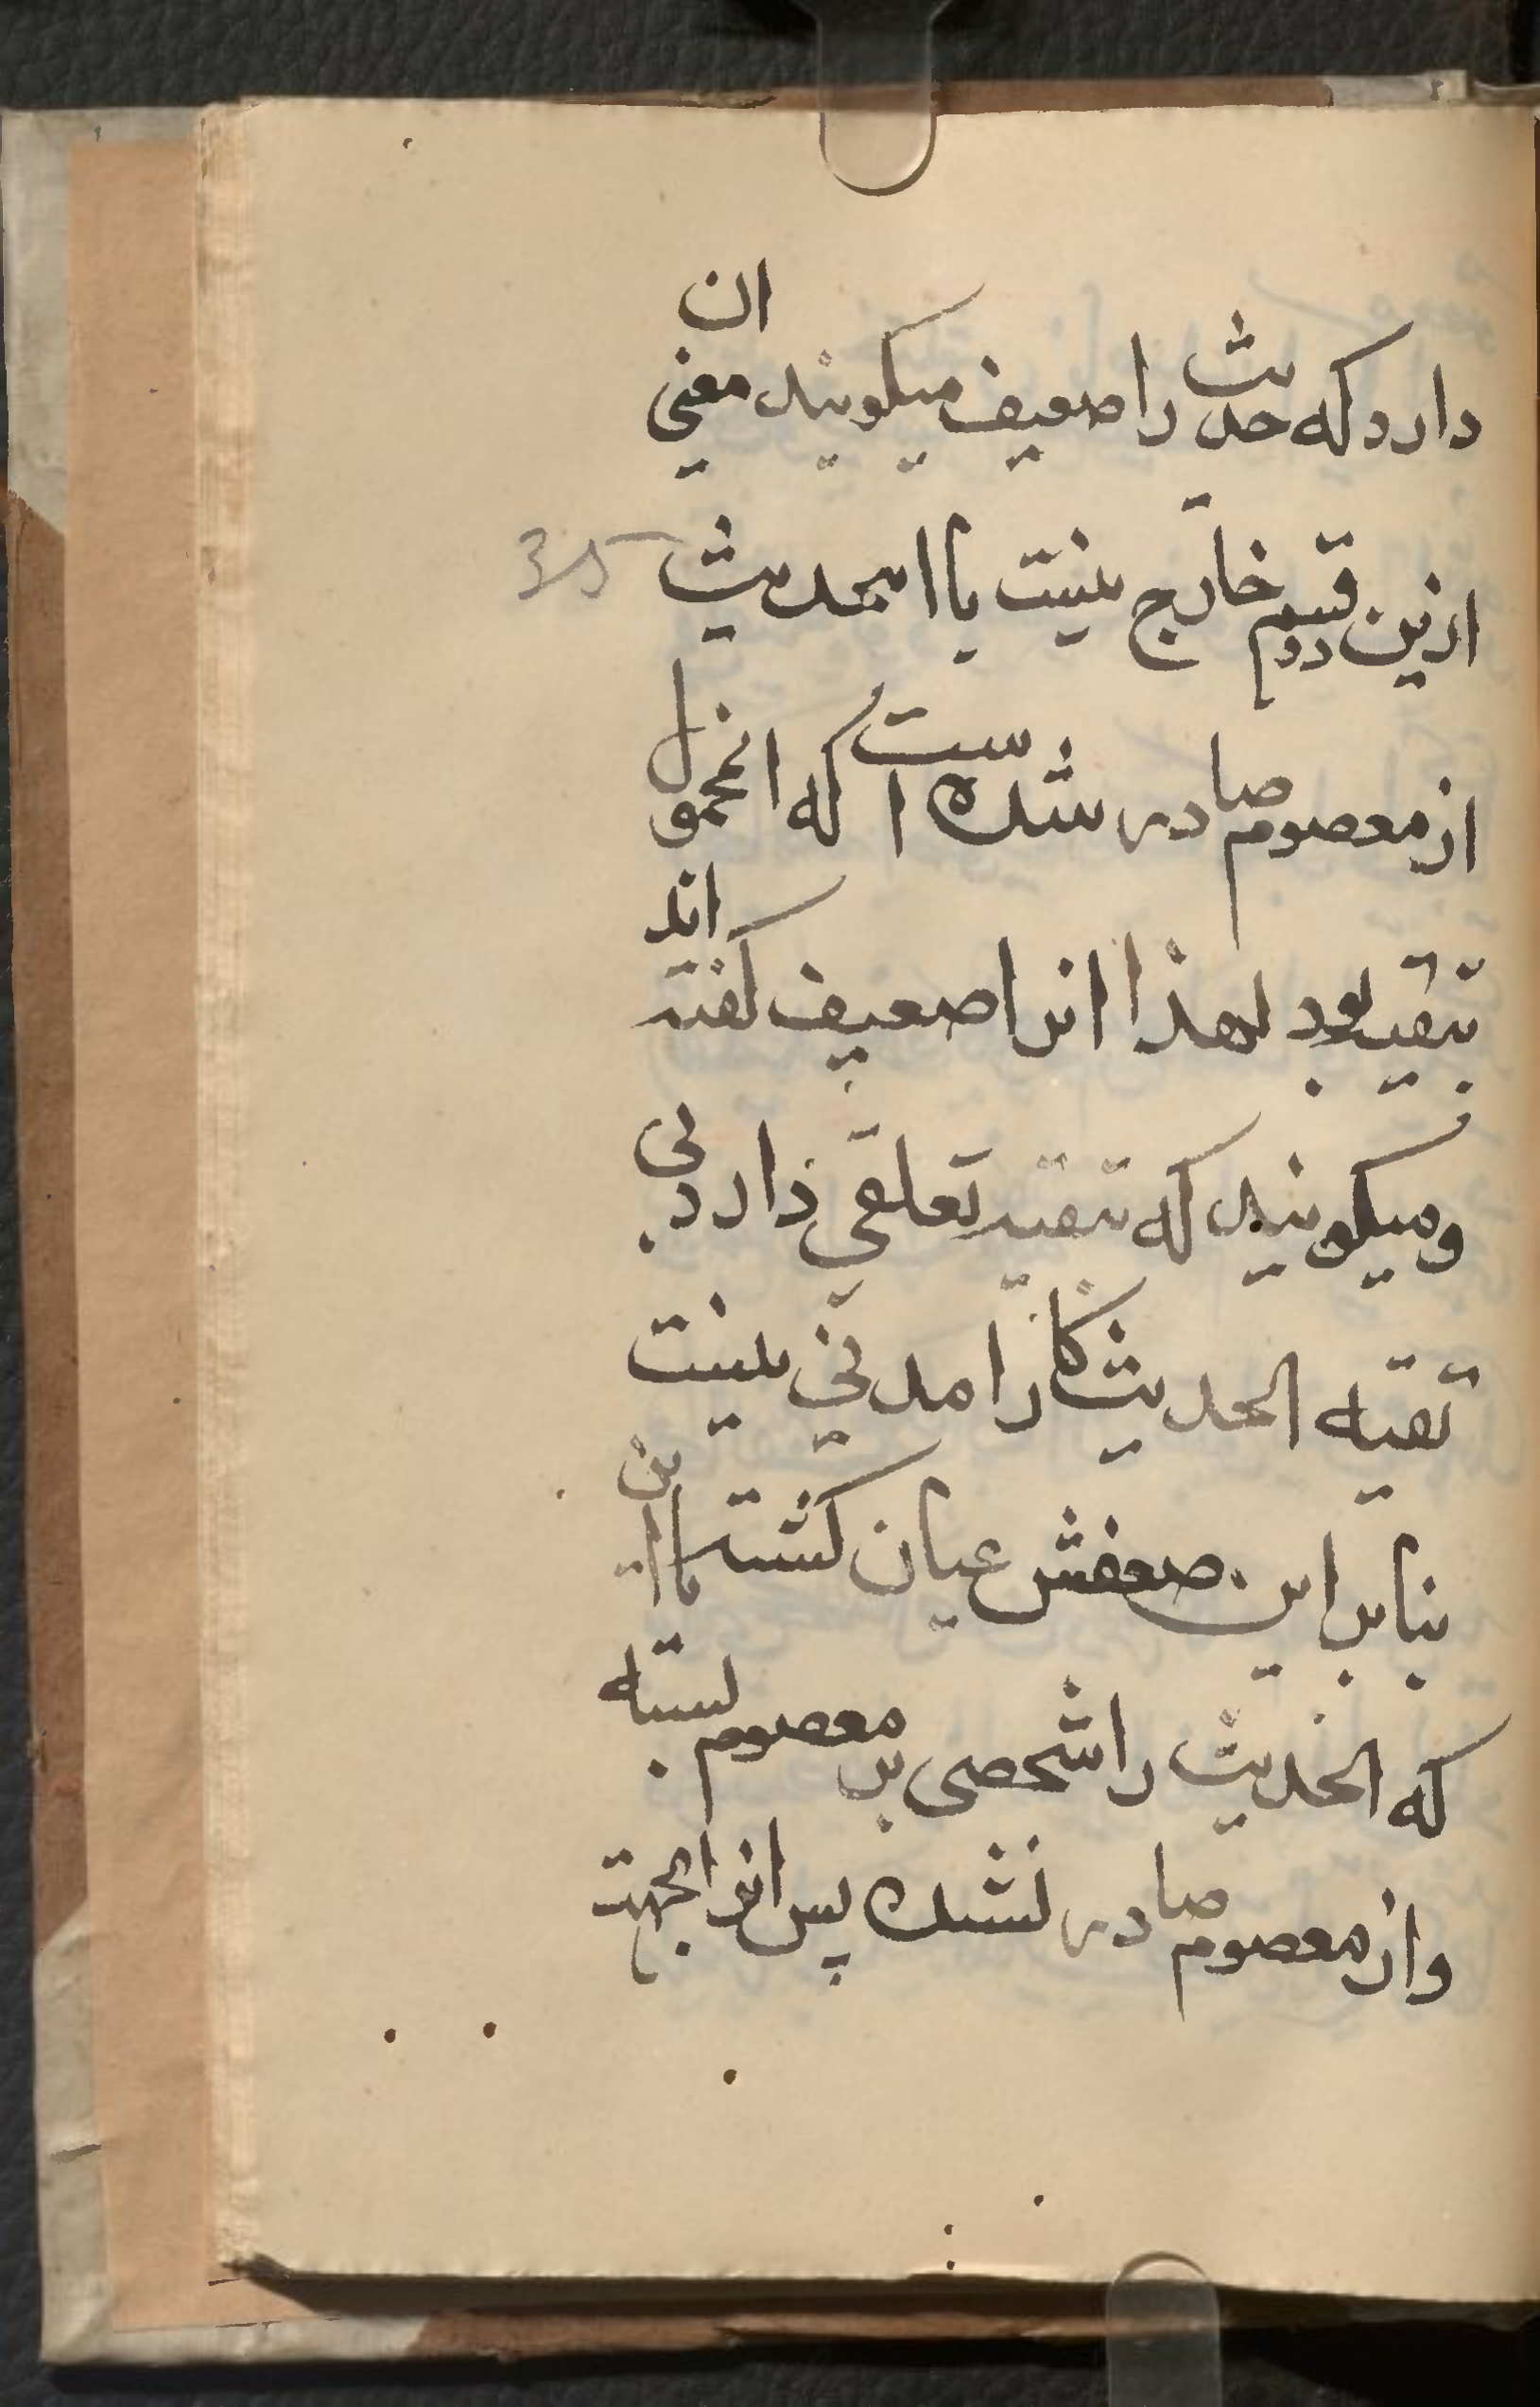 دارد که حدیث را ضعیف میگویند معنی ان
ازین دو قسم خارج نیست یا انحدیث
از معصوم صادر شده است که انمحمول
بتقیه بود لهذا انرا ضعیف گفته اند
ومیگویند که بتقیه تعلقی دارد بی
تقیه الحدیث کارامدنی نیست
بنابر این ضعفش عیان گشته یا این
که الحدیث را شخصی بر معصوم بسته
واز معصوم صادر نشده پس انرا بجهت
35